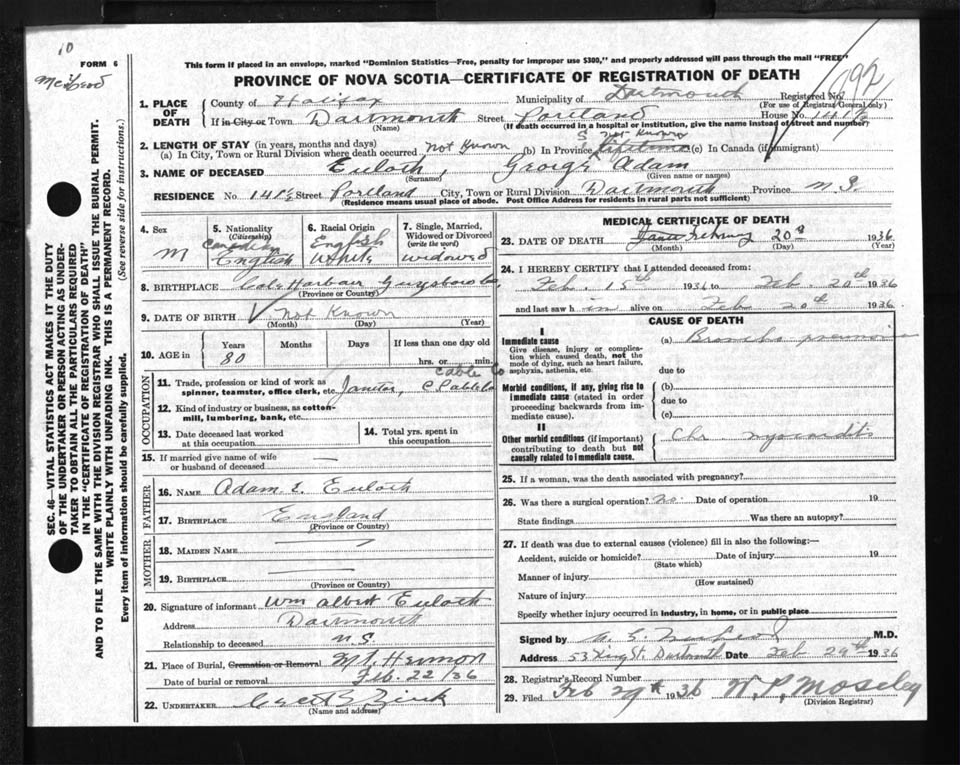 10
FORM 6
This form if placed in an envelope, marked "Dominion Statistics—Free, penalty for improper use $300," and properly addressed will pass through the mail "FREE"
PROVINCE OF NOVA SCOTIA—CERTIFICATE OF REGISTRATION OF DEATH
792
1. PLACE OF DEATH
County of Halifax Municipality of Dartmouth Registered No.
(For use of Registrar General only)
If in City or Town Dartmouth Street Portland House No. 141½
(Name) (If death occurred in a hospital or institution, give the name instead of street and number)
2. LENGTH OF STAY (in years, months and days)
(a) In City, Town or Rural Division where death occurred Not Known (b) In Province Not Known lifetime (c) In Canada (if immigrant)
3. NAME OF DECEASED Euloth, George Adam
(Surname) (Given name or names)
RESIDENCE No. 141½ Street Portland City, Town or Rural Division Dartmouth Province N.S.
(Residence means usual place of abode. Post Office Address for residents in rural parts not sufficient)
4. Sex M
5. Nationality (Citizenship) Canadian English
6. Racial Origin English White
7. Single, Married, Widowed or Divorced (write the word) widowed
8. BIRTHPLACE Cole Harbour Guysboro Co,
(Province or Country)
9. DATE OF BIRTH Not Known
(Month) (Day) (Year)
10. AGE in Years Months Days If less than one day old
80 hrs. or min.
OCCUPATION
11. Trade, profession or kind of work as spinner, teamster, office clerk, etc. Janitor, Cable Co
12. Kind of industry or business, as cotton-mill, lumbering, bank, etc.
13. Date deceased last worked at this occupation
14. Total yrs. spent in this occupation
15. If married give name of wife or husband of deceased —
FATHER
16. NAME Adam E. Euloth
17. BIRTHPLACE England
(Province or Country)
MOTHER
18. MAIDEN NAME —
19. BIRTHPLACE —
(Province or Country)
20. Signature of informant Wm Albert Euloth
Address Dartmouth
Relationship to deceased N.S.
21. Place of Burial, Cremation or Removal Mt. Hermon
Date of burial or removal Feb. 22/36
22. UNDERTAKER Zink
(Name and address)
MEDICAL CERTIFICATE OF DEATH
23. DATE OF DEATH February 20 1936
(Month) (Day) (Year)
24. I HEREBY CERTIFY that I attended deceased from:
Feb. 15th 1936 to Feb. 20th 1936
and last saw h im alive on Feb 20th 1936
CAUSE OF DEATH
I
Immediate cause
Give disease, injury or complication which caused death, not the mode of dying, such as heart failure, asphyxia, asthenia, etc.
(a) Broncho pneumonia
due to
Morbid conditions, if any, giving rise to immediate cause (stated in order proceeding backwards from immediate cause).
(b)
due to
(c)
II
Other morbid conditions (if important) contributing to death but not causally related to immediate cause.
Chr. myocardit.
25. If a woman, was the death associated with pregnancy?
26. Was there a surgical operation? no. Date of operation 19
State findings Was there an autopsy?
27. If death was due to external causes (violence) fill in also the following:—
Accident, suicide or homicide? Date of injury 19
(State which)
Manner of injury
(How sustained)
Nature of injury
Specify whether injury occurred in industry, in home, or in public place
Signed by M.D.
Address 53 King St. Dartmouth Date Feb 29th 1936
28. Registrar's Record Number
29. Filed Feb 29th 1936 W. P. Moseley
(Division Registrar)
SEC. 46—VITAL STATISTICS ACT MAKES IT THE DUTY
OF THE UNDERTAKER OR PERSON ACTING AS UNDER-
TAKER TO OBTAIN ALL THE PARTICULARS REQUIRED
IN THE "CERTIFICATE OF REGISTRATION OF DEATH"
AND TO FILE THE SAME WITH THE DIVISION REGISTRAR WHO SHALL ISSUE THE BURIAL PERMIT.
WRITE PLAINLY WITH UNFADING INK. THIS IS A PERMANENT RECORD.
Every item of information should be carefully supplied. (See reverse side for instructions.)